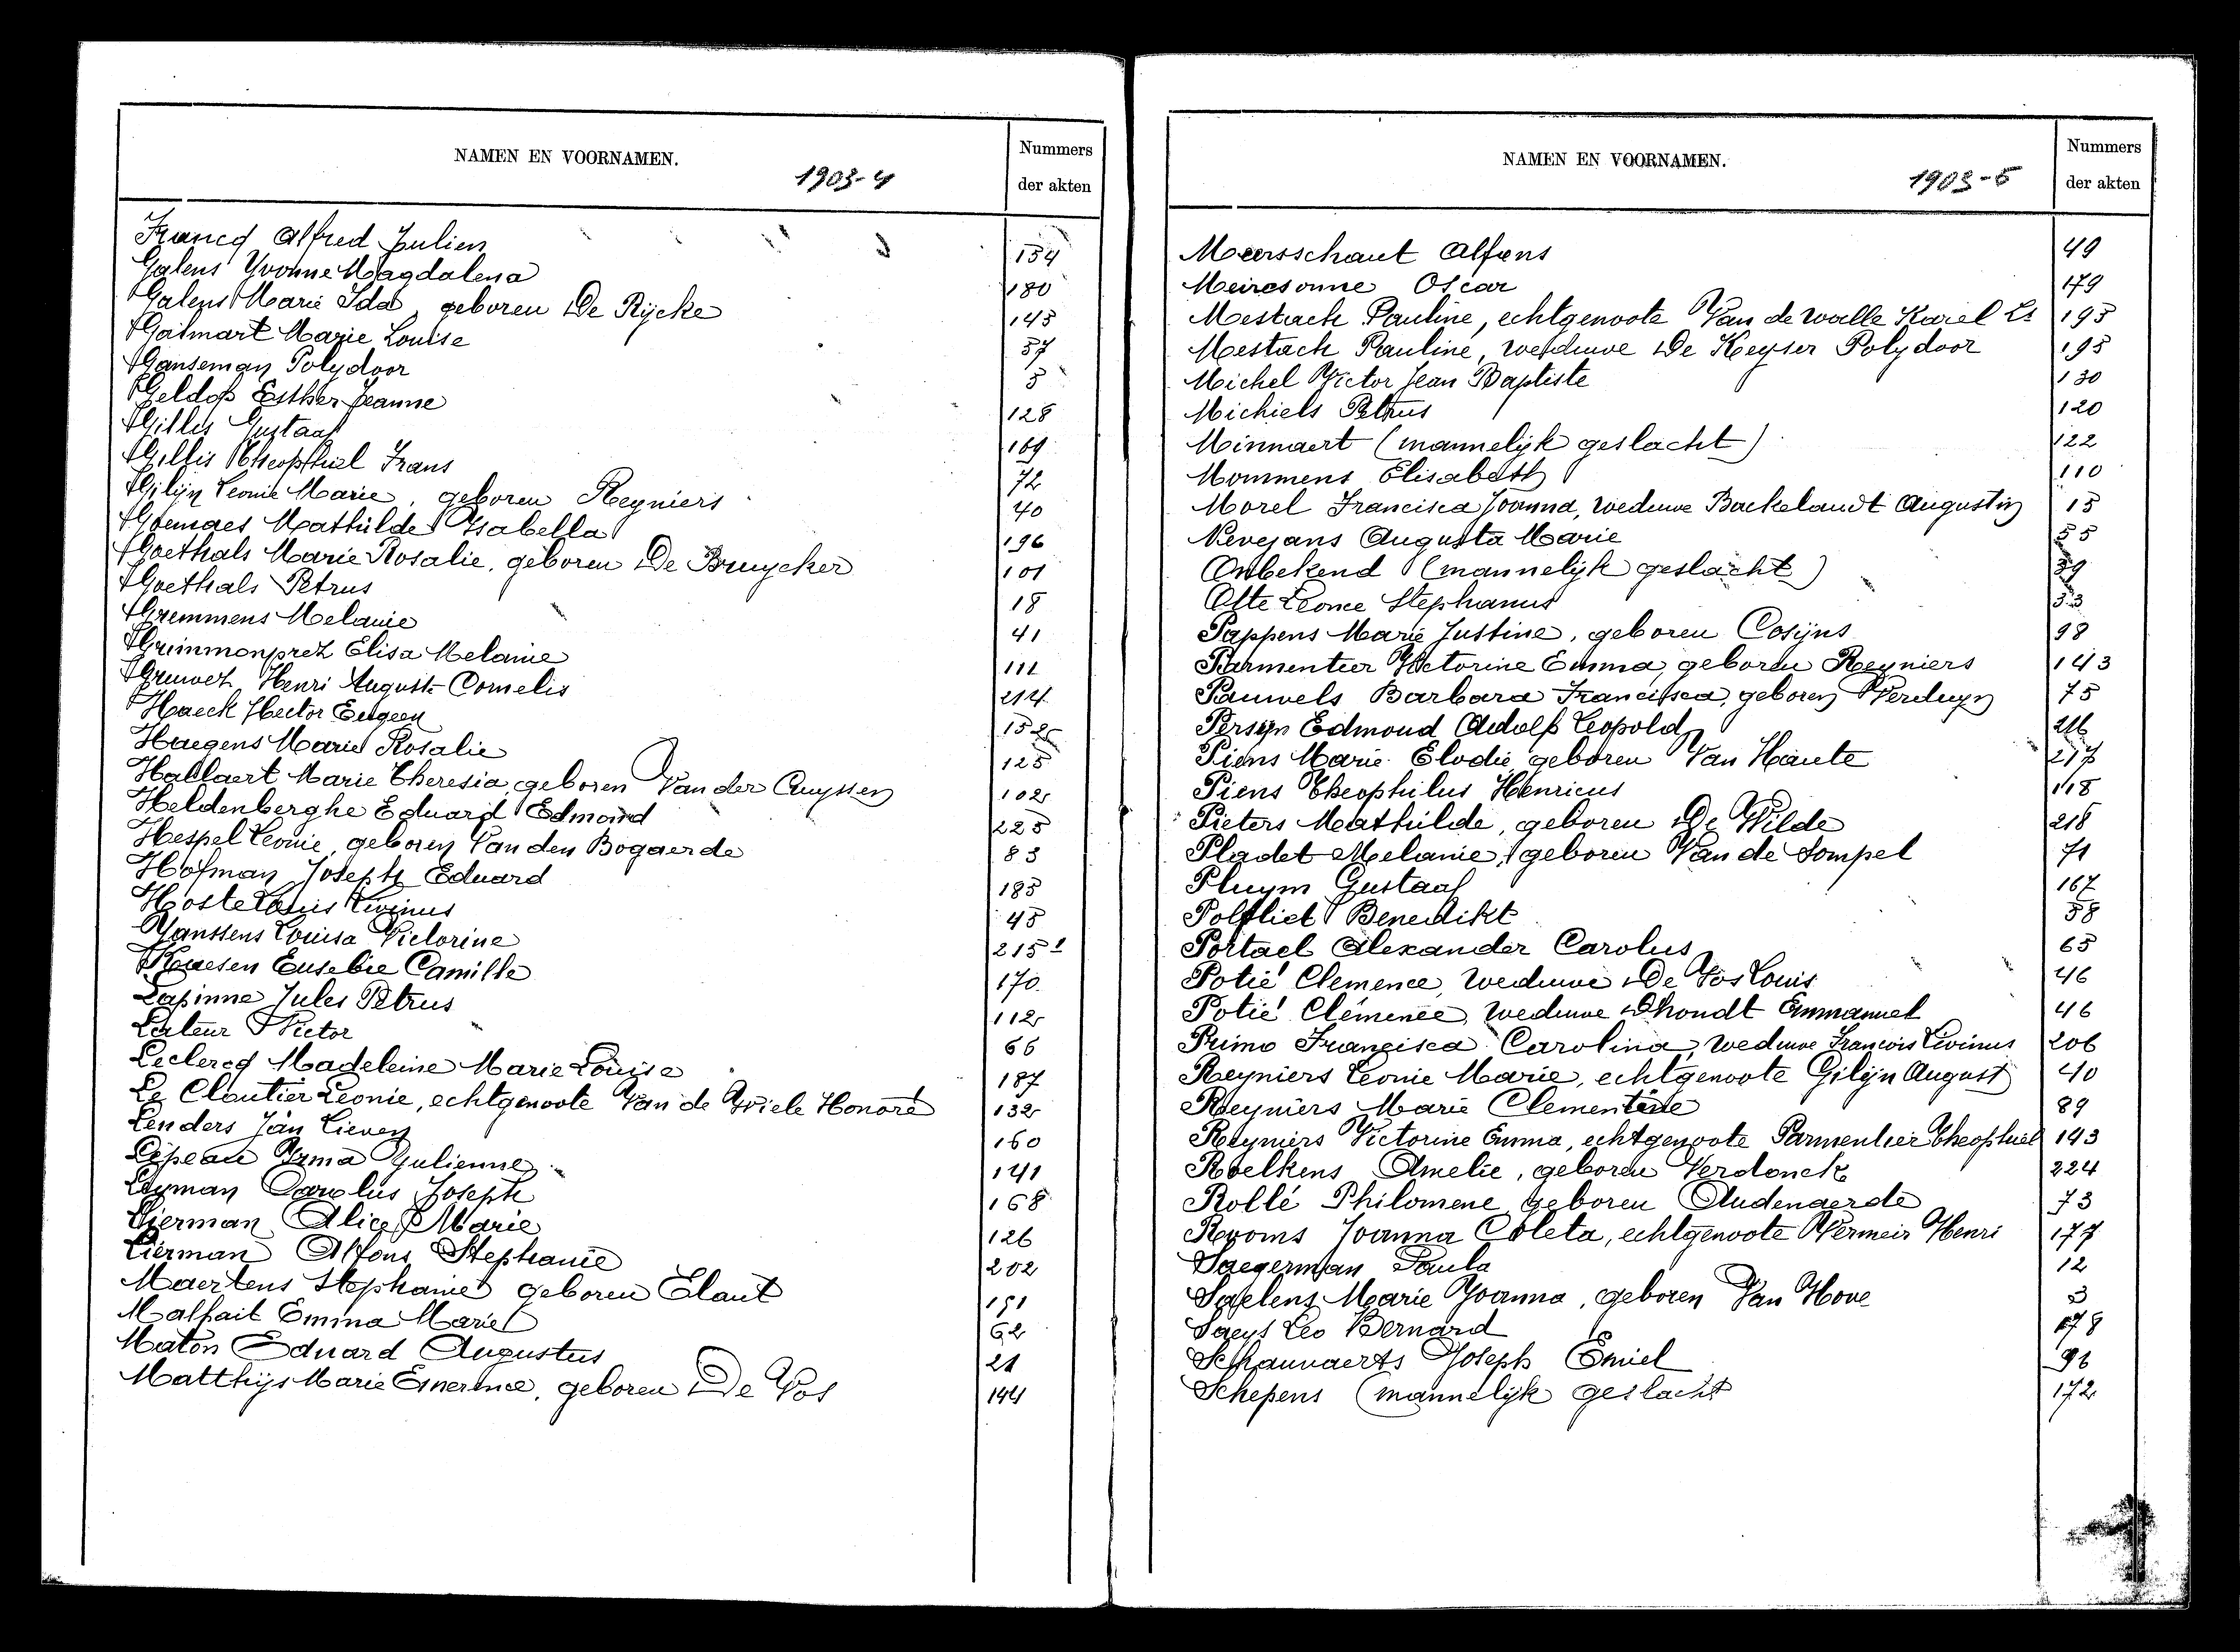 NAMEN EN VOORNAMEN.
1903-4
Nummers
der akten
Francq Alfred Julien 154
Galens Yvonne Magdalena 180
Galens Marie Ida, geboren De Rijcke 145
Galmart Marie Louise 57
Ganseman Polydoor 5
Geldof Esther Jeanne 128
Gilles Gustaaf 169
Gillis Theophiel Frans 72
Gilijn Leonie Marie, geboren Reyniers 40
Goemaes Mathilde Isabella 196
Goethals Marie Rosalie, geboren De Bruycker 101
Goethals Petrus 18
Gremmens Melanie 41
Grimmonprez Elisa Melanie 111
Gruwez Henri Auguste Cornelis 214
Haeck Hector Eugeen 152
Haegens Marie Rosalie 125
Hallaert Marie Theresia, geboren Van der Cruyssen 102
Heldenberghe Eduard Edmond 225
Hespel Leonie, geboren Van den Bogaerde 83
Hofman Joseph Eduard 185
Hoste Louis Livinus 45
Janssens Louisa Victorine 215
Kuesen Eusebie Camille 170
Lapinne Jules Petrus 112
Lateur Victor 66
Leclercq Madeleine Marie Louise 187
Le Cloutier Leonie, echtgenoote Van de Wiele Honoré 132
Lenders Jan Lieven 160
Lepeau Irma Julienne 141
Leyman Carolus Joseph 168
Lierman Alice Marie 126
Lierman Alfons Stephanie 202
Maertens Stephanie geboren Elaut 191
Malfait Emma Marie 62
Maton Eduard Augustus 21
Matthijs Marie Emerence, geboren De Vos 144
NAMEN EN VOORNAMEN.
1903-5
Nummers
der akten
Meersschaut Alfons 49
Meiresonne Oscar 179
Mestach Pauline, echtgenoote Van de walle Karel Ls 195
Mestach Pauline, weduwe De Keyser Polydoor 195
Michel Victor Jean Baptiste 130
Michiels Petrus 120
Minnaert (mannelijk geslacht) 122
Mommens Elisabeth 110
Morel Francisca Joanna, weduwe Backelandt Augustin 15
Nevejans Augusta Marie 55
Onbekend (mannelijk geslacht) 39
Otte Leonie Stephanus 53
Pappens Marie Justine, geboren Cosijns 98
Parmentier Victorine Emma, geboren Reyniers 143
Pauwels Barbara Francisca, geboren Verduyn 75
Persyn Edmond Adolf Leopold 216
Piens Marie Elodie geboren Van Haute 217
Piens Theophilus Henricus 118
Pieters Mathilde, geboren De Wilde 218
Pladet Melanie, geboren Van de Sompel 71
Pluym Gustaaf 167
Polfliet Benedikt 58
Portael Alexander Carolus 65
Potié Clemence, weduwe De Vos Louis 46
Potié Clémence, weduwe Dhondt Emmanuel 46
Primo Francisca Carolina, weduwe Francois Livinus 206
Reyniers Leonie Marie, echtgenoote Gilijn August 40
Reyniers Marie Clementine 89
Reyniers Victorine Emma, echtgenoote Parmentier Theophiel 143
Roelkens Amelie, geboren Verdonck 224
Rollé Philomene geboren Audenaerde 73
Rooms Joanna Coleta, echtgenoote Vermeir Henri 177
Saegerman Paula 12
Saelens Marie Joanna, geboren Van Hove 3
Saeys Leo Bernard 178
Schauvaerts Joseph Emiel 96
Schepens (mannelijk geslacht 172